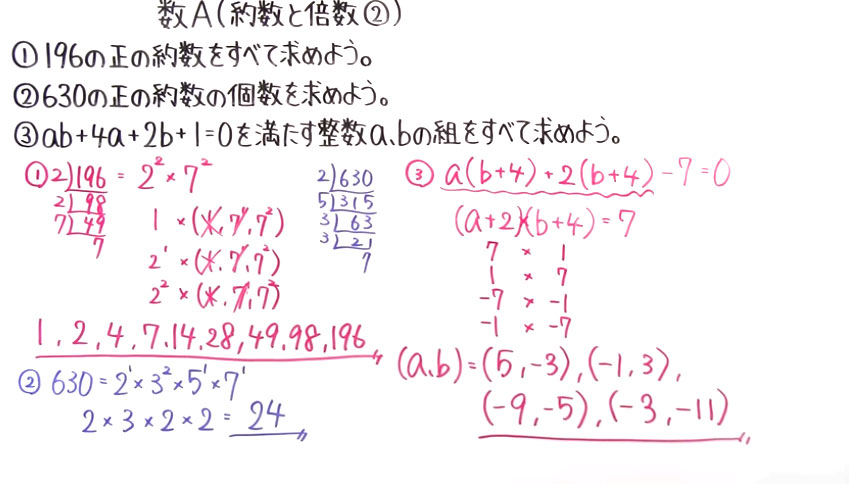 数A(約数と倍数②)
①196の正の約数をすべて求めよう。
②630の正の約数の個数を求めよう。
③ab+4a+2b+1=0を満たす整数a、bの組をすべて求めよう。
①2)196 = 2² × 7²
2)98
7)49
7
1 × (1, 7¹, 7²)
2¹ × (1, 7¹, 7²)
2² × (1, 7¹, 7²)
1, 2, 4, 7, 14, 28, 49, 98, 196
2)630
5)315
3)63
3)21
7
② 630 = 2¹ × 3² × 5¹ × 7¹
2 × 3 × 2 × 2 = 24
③ a(b+4) + 2(b+4) - 7 = 0
(a+2)(b+4) = 7
7 × 1
1 × 7
-7 × -1
-1 × -7
(a、b) = (5, -3), (-1, 3),
(-9, -5), (-3, -11)